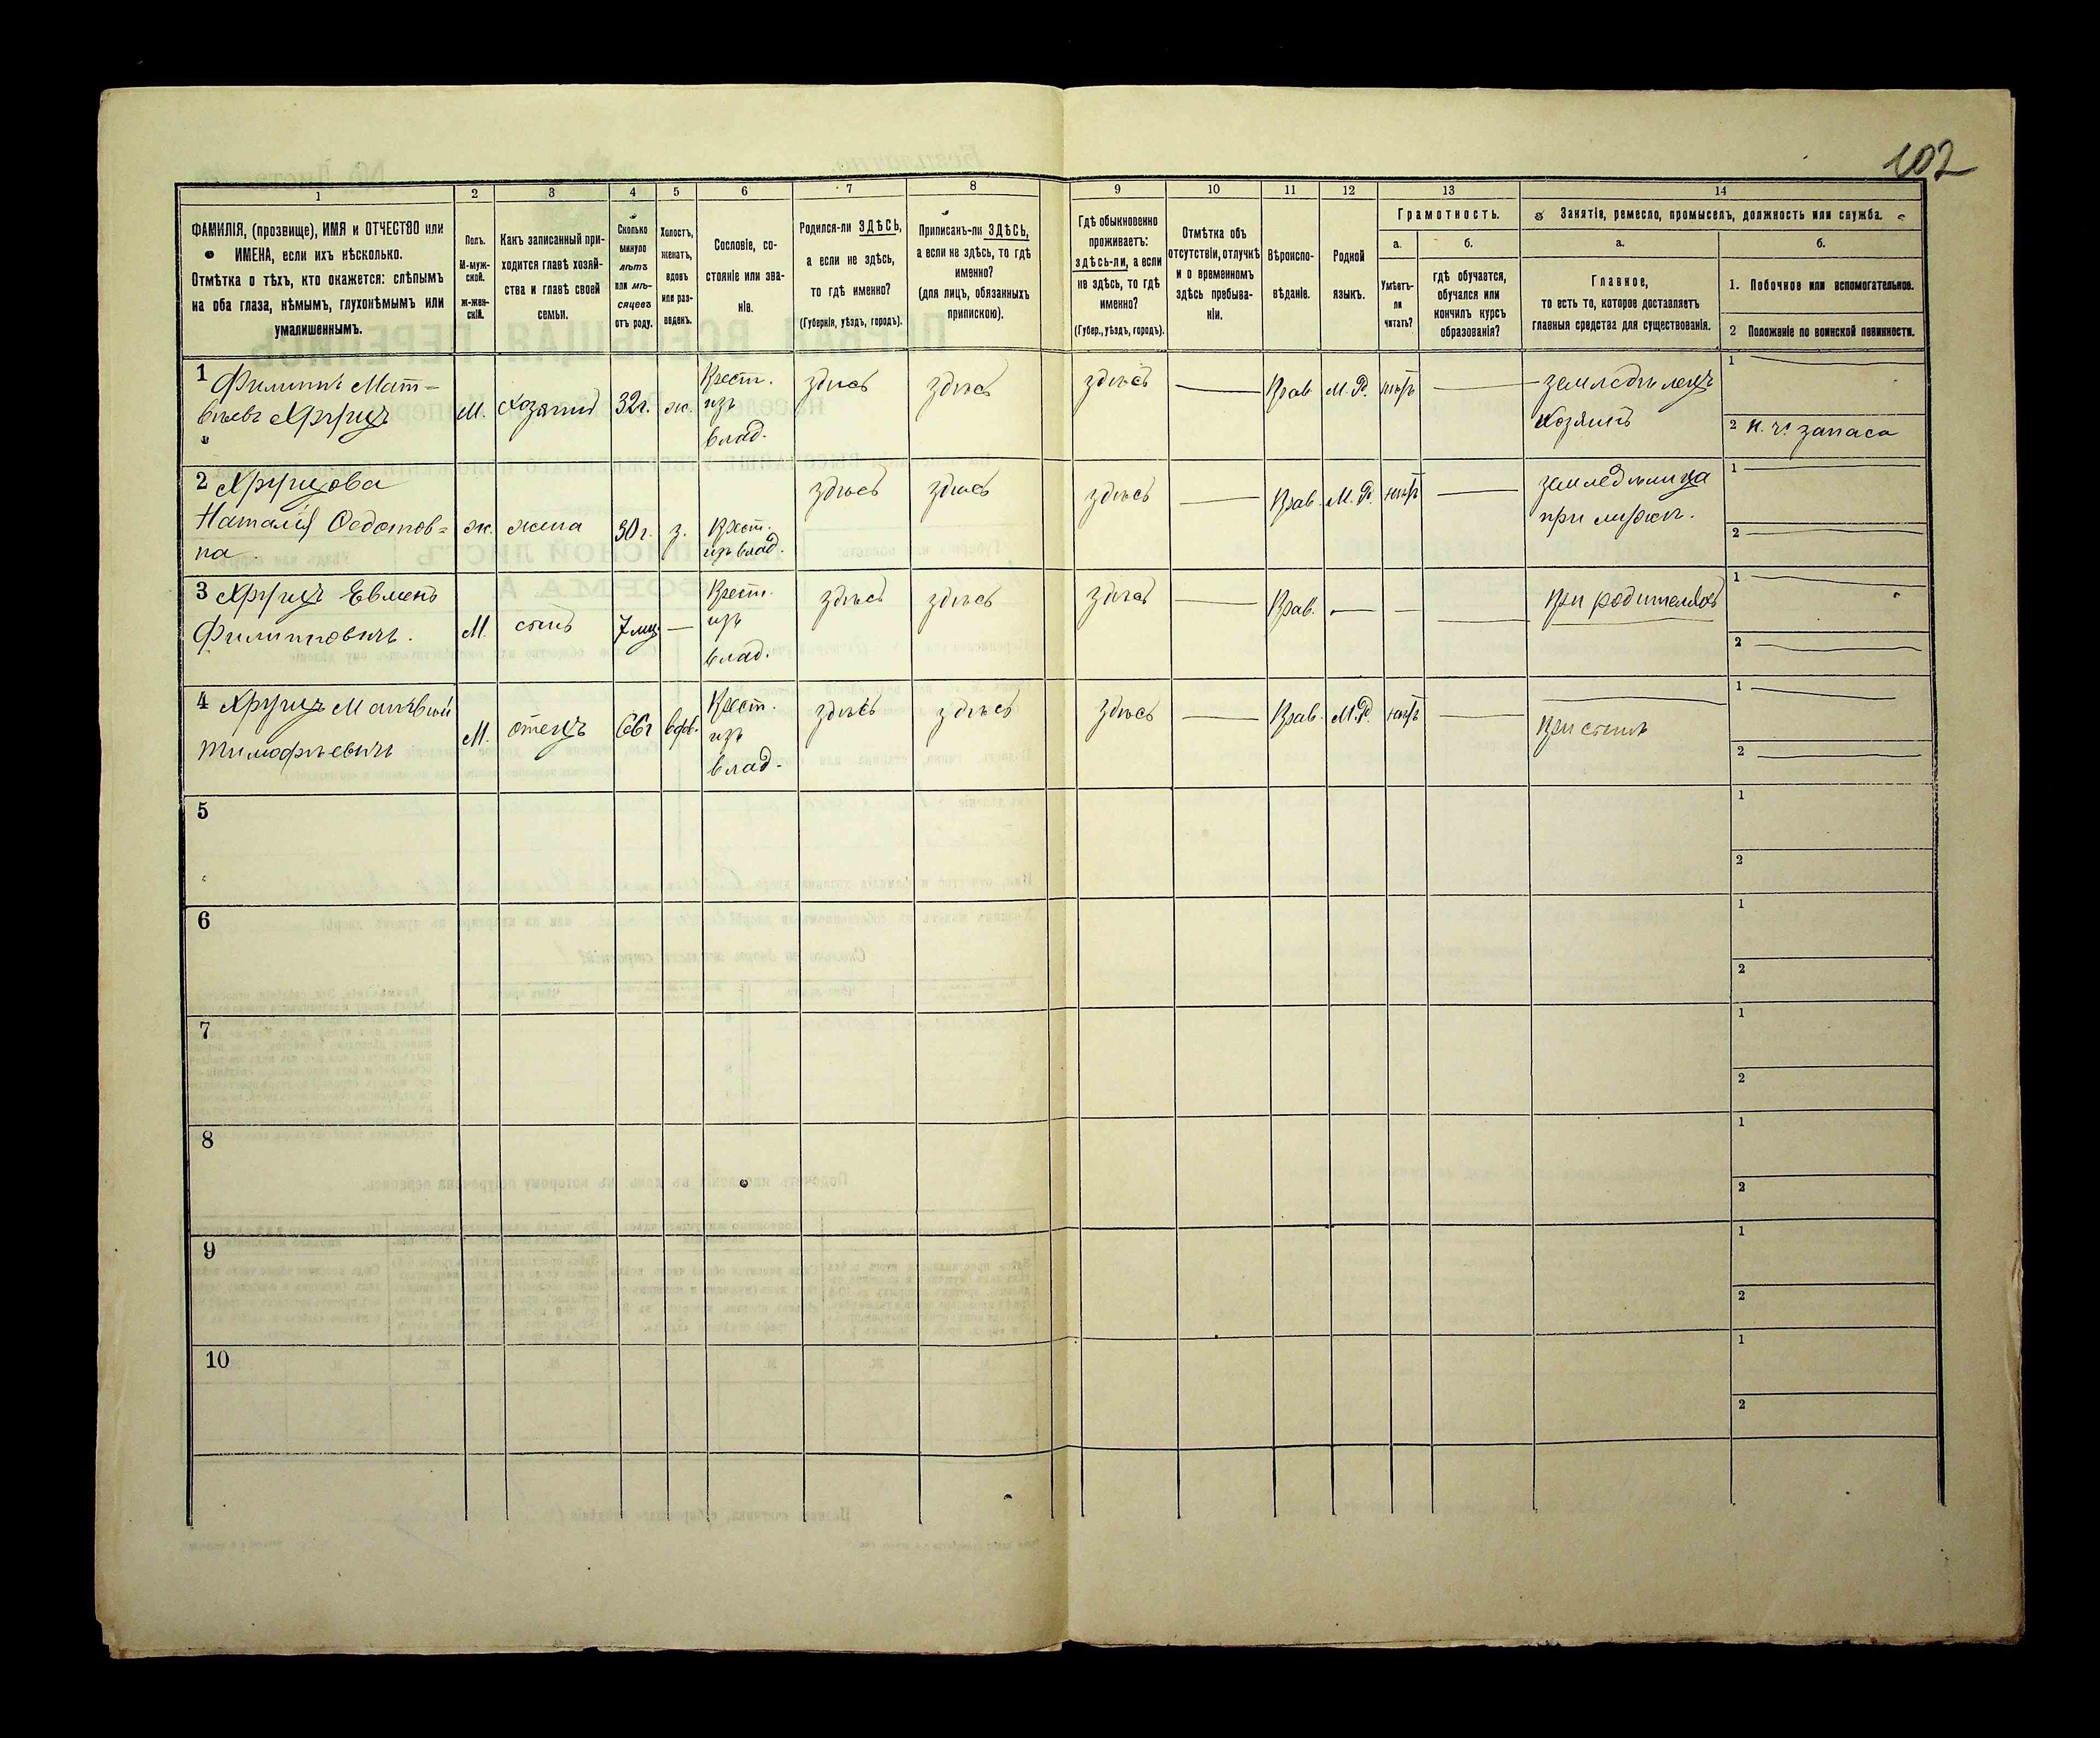 102
1 2 3 4 5 6 7 8 9 10 11 12 13 14
ФАМИЛІЯ, (прозвище), ИМЯ и ОТЧЕСТВО или
ИМЕНА, если ихъ нѣсколько.
Отмѣтка о тѣхъ, кто окажется: слѣпымъ
на оба глаза, нѣмымъ, глухонѣмымъ или
умалишеннымъ.
Полъ.
М-муж-
ской.
ж-жен-
скій.
Какъ записанный при-
ходится главѣ хозяй-
ства и главѣ своей
семьи.
Сколько
минуло
лѣтъ
или мѣ-
сяцевъ
отъ роду.
Холостъ,
женатъ,
вдовъ
или раз-
веденъ.
Сословіе, со-
стояніе или зва-
ніе.
Родился-ли ЗДѢСЬ,
а если не здѣсь,
то гдѣ именно?
(Губернія, уѣздъ, городъ).
Приписанъ-ли ЗДѢСЬ,
а если не здѣсь, то гдѣ
именно?
(для лицъ, обязанныхъ
припискою).
Гдѣ обыкновенно
проживаетъ:
здѣсь-ли, а если
не здѣсь, то гдѣ
именно?
(Губер., уѣздъ, городъ).
Отмѣтка объ
отсутствіи, отлучкѣ
и о временномъ
здѣсь пребыва-
ніи.
Вѣроиспо-
вѣданіе.
Родной
языкъ.
Грамотность.
а.
Умѣетъ-
ли
читать?
б.
гдѣ обучается,
обучался или
кончилъ курсъ
образованія?
Занятіе, ремесло, промыселъ, должность или служба.
а.
Главное,
то есть то, которое доставляетъ
главныя средства для существованія.
б.
1. Побочное или вспомогательное.
2 Положеніе по воинской повинности.
1 Филиппъ Мат-
вѣевъ Хрущъ
М.
Хозяинъ
32 г.
ж.
Крест.
изъ
влад.
здѣсь
здѣсь
здѣсь
Прав
М. Р.
нѣтъ
земледѣлецъ
хозяинъ
1
2 н. ч. запаса
2 Хрущова
Наталія Федотов-
на.
ж.
жена
30 г.
з.
Крест.
изъ влад.
здѣсь
здѣсь
здѣсь
Прав.
М. Р.
нѣтъ
земледѣлица
при мужѣ.
1
2
3 Хрущъ Евменъ
Филипповичъ.
М.
сынъ
7 мц.
Крест.
изъ
влад.
здѣсь
здѣсь
здѣсь
Прав.
при родителяхъ
1
2
4 Хрущъ Матвѣй
Тимофѣевичъ
М.
отецъ
66 г
вдв.
Крест.
изъ
влад.
здѣсь
здѣсь
здѣсь
Прав.
М. Р.
нѣтъ
при сынѣ
1
2
5
1
2
6
1
2
7
1
2
8
1
2
9
1
2
10
1
2